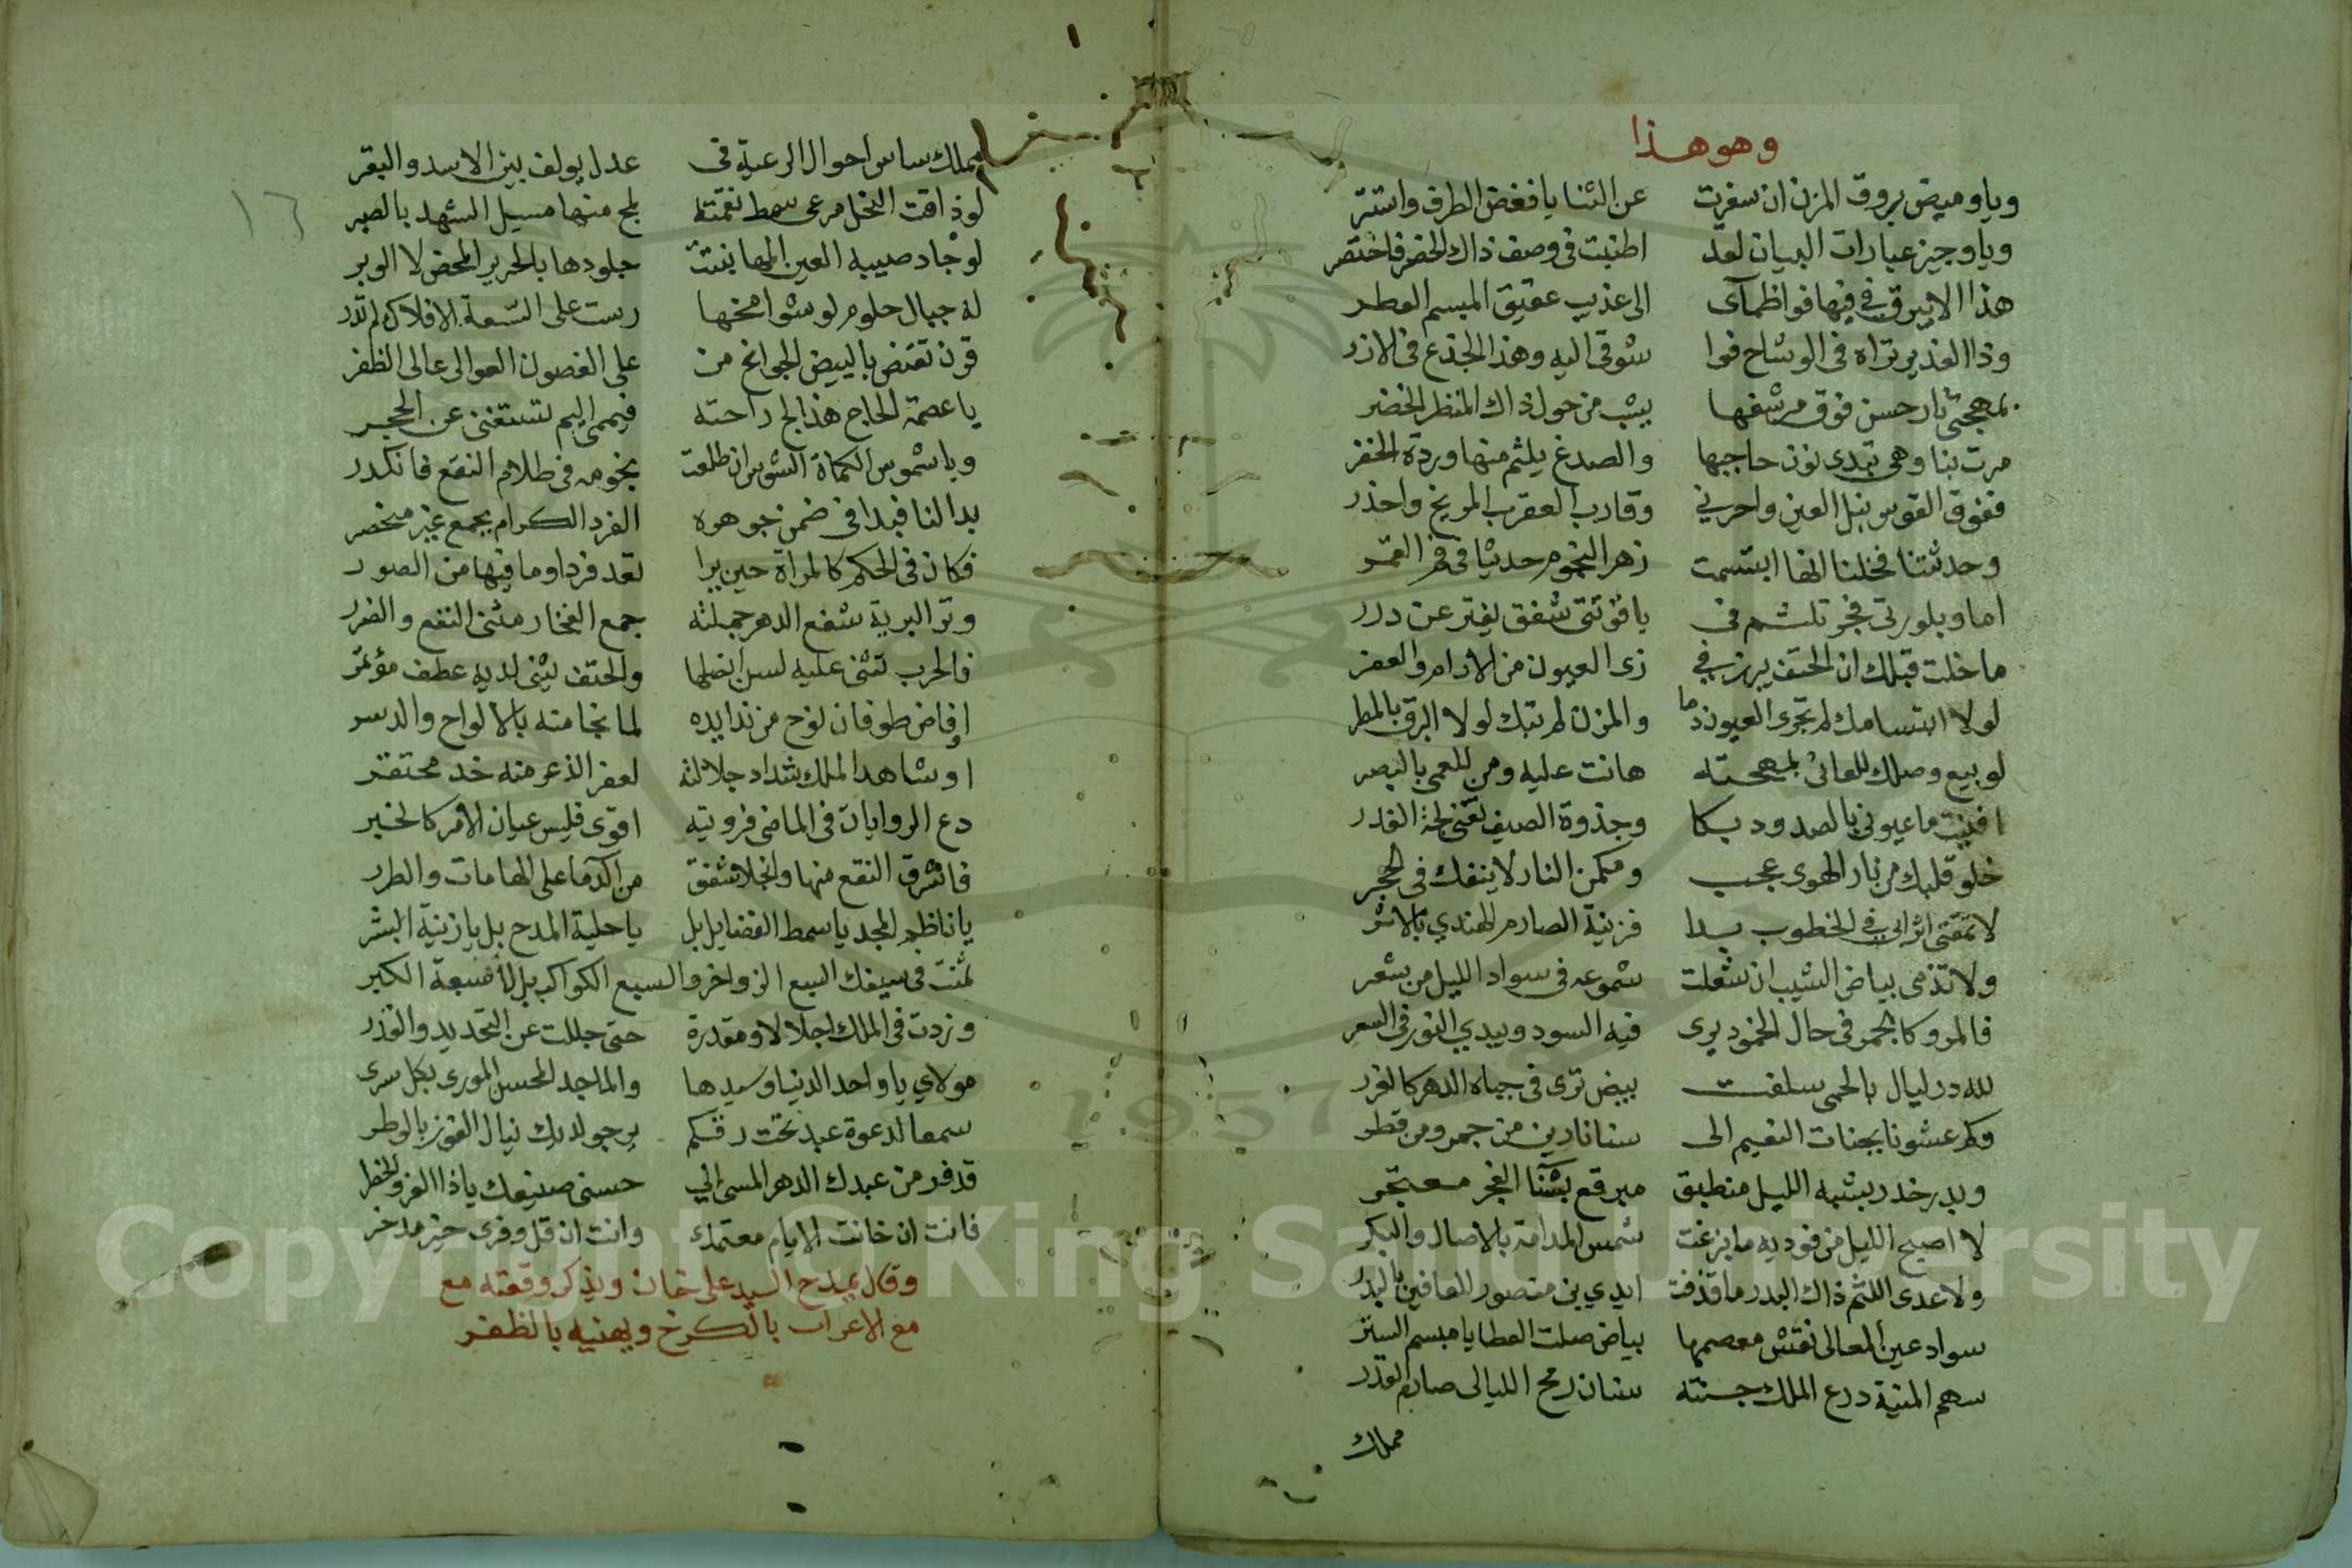 وهو هذا
ويا وميض بروق المزن ان سفرت عن الثنايا فغض الطرف واستتر
ويا وجيز عبارات البيان لقد اطنبت في وصف ذاك الخصر فاختصر
هذا الابيرق في فيها فواظمآى الى عذيب عقيق المبسم العطر
وذا الغدير تراه في الوشاح فوا شوقي اليه وهذا الجذع في الازر
بمهجتي نار حسن فوق مرشفها يشب من حول ذاك المنظر الخضر
مرت بنا وهي تبدى نون حاجبها والصدغ يلثم منها وردة الخفر
ففوق القوس نبل العين واحربي وقارب العقرب المريخ واحذر
وحدثتنا فخلنا انها ابتسمت زهر النجوم حديثا في فم القمر
اما وبلورتى فجر تلثم في ياقوتتى شفق يفتر عن درر
ما خلت قبلك ان الحتف يبرز في زى العيون من الارام والعفر
لولا ابتسامك لم تجرى العيون دما والمزن لم تبك لولا البرق بالمطر
لو بيع وصلك للعانى بمهجته هانت عليه ومن للعمى بالبصر
افنيت ما عيونى بالصدود بكا وجذوة الصيف تفنى لجة الغدر
خلو قلبك من نار الهوى عجب ومكمن النار لا ينفك في الحجر
لا تمقتى اثرا لى في الخطوب بدا فزينة الصارم الهندي بالاثر
ولا تذمى بياض الشيب ان شعلت شموعه في سواد الليل من شعر
فالمرو كالجمر في حال الخمود يرى فيه السود ويبدي النور في السعر
لله در ليال بالحمى سلفت بيض ترى في جباه الدهر كالغرر
وكم عشونا بجنات النعيم الى سنا نارين من جمر ومن قطر
وبدر خدر بشبه الليل منطبق مبرقع بسنا الفجر معتجر
لا اصبح الليل من فوديه ما بزغت شمس المدامة بالاصال والبكر
ولا عدى اللثم ذاك البدر ما قذفت ايدي بنى منصور للعافين بالبدر
سواد عين المعالى نقش معصمها بياض صلت العطايا مبسم السير
سهم المنية درع الملك جنته سنان رمح الليالى صارم القدر
مملك
مملك ساس احوال الرعية في عدل يولف بين الاسد والبقر
لو ذاقت النحل مرعى سهط نقمته لمج منها مسيل الشهد بالصبر
لو جاد صيبه العين المها بنتت جلودها بالحرير المحض لا الوبر
له جبال حلوم لو شوامخها رست على السعة الافلاك لم تدر
قرن تقنص بالبيض الجوانح من على الغصون العوالى عالى الظفر
يا عصمة الحاج هذا لج راحته فيممى اليم تستغنى عن الحجر
ويا شموس الكماة الشوس ان طلعت نجومه في ظلام النقع فانكدر
بدا لنا فبدا في ضمن جوهره الفرد الكرام بجمع غير منحصر
فكان في الحكم كالمراة حين يرا تعد فردا وما فيها من الصور
وتر البرية شفع الدهر جملته جمع الفخار مثنى النفع والضرر
فالحرب تثنى عليه لسن انصلها والحتف يثنى لديه عطف مؤتمر
او فاض طوفان نوح من ندا يده لما نجا منه بالالواح والدسر
او شاهد الملك شداد جلالته لعفر الذعر منه خد محتقر
دع الروايات في الماضى فرويته اقوى فليس عيان الامر كالخبر
فاشرق النقع منها وانجلا شفق من الدما على الهامات والطرر
يا ناظم المجد يا سمط الفضايل بل يا حلية المدح بل يا زينة البشر
ثمنت في سيفك السبع الزواخر والسبع الكواكب بل بالسبعة الكبر
وزدت في الملك اجلالا ومقدرة حتى جللت عن التحديد والقدر
مولاي يا واحد الدنيا وسيدها والماجد المحسن المورى بكل سرى
سمعا لدعوة عبد تحت رقكم يرجو لديك نيال الفوز بالوطر
قد فر من عبدك الدهر المسى الي حسنى صنيعك يا ذا العز والخطر
فانت ان خانت الايام معتمدى وانت ان قل وفرى خير مدخر
وقال يمدح السيد على خان ويذكر وقعته مع
مع الاعراب بالكرخ ويهنيه بالظفر
١٦
Copyright © King Saud University
1957